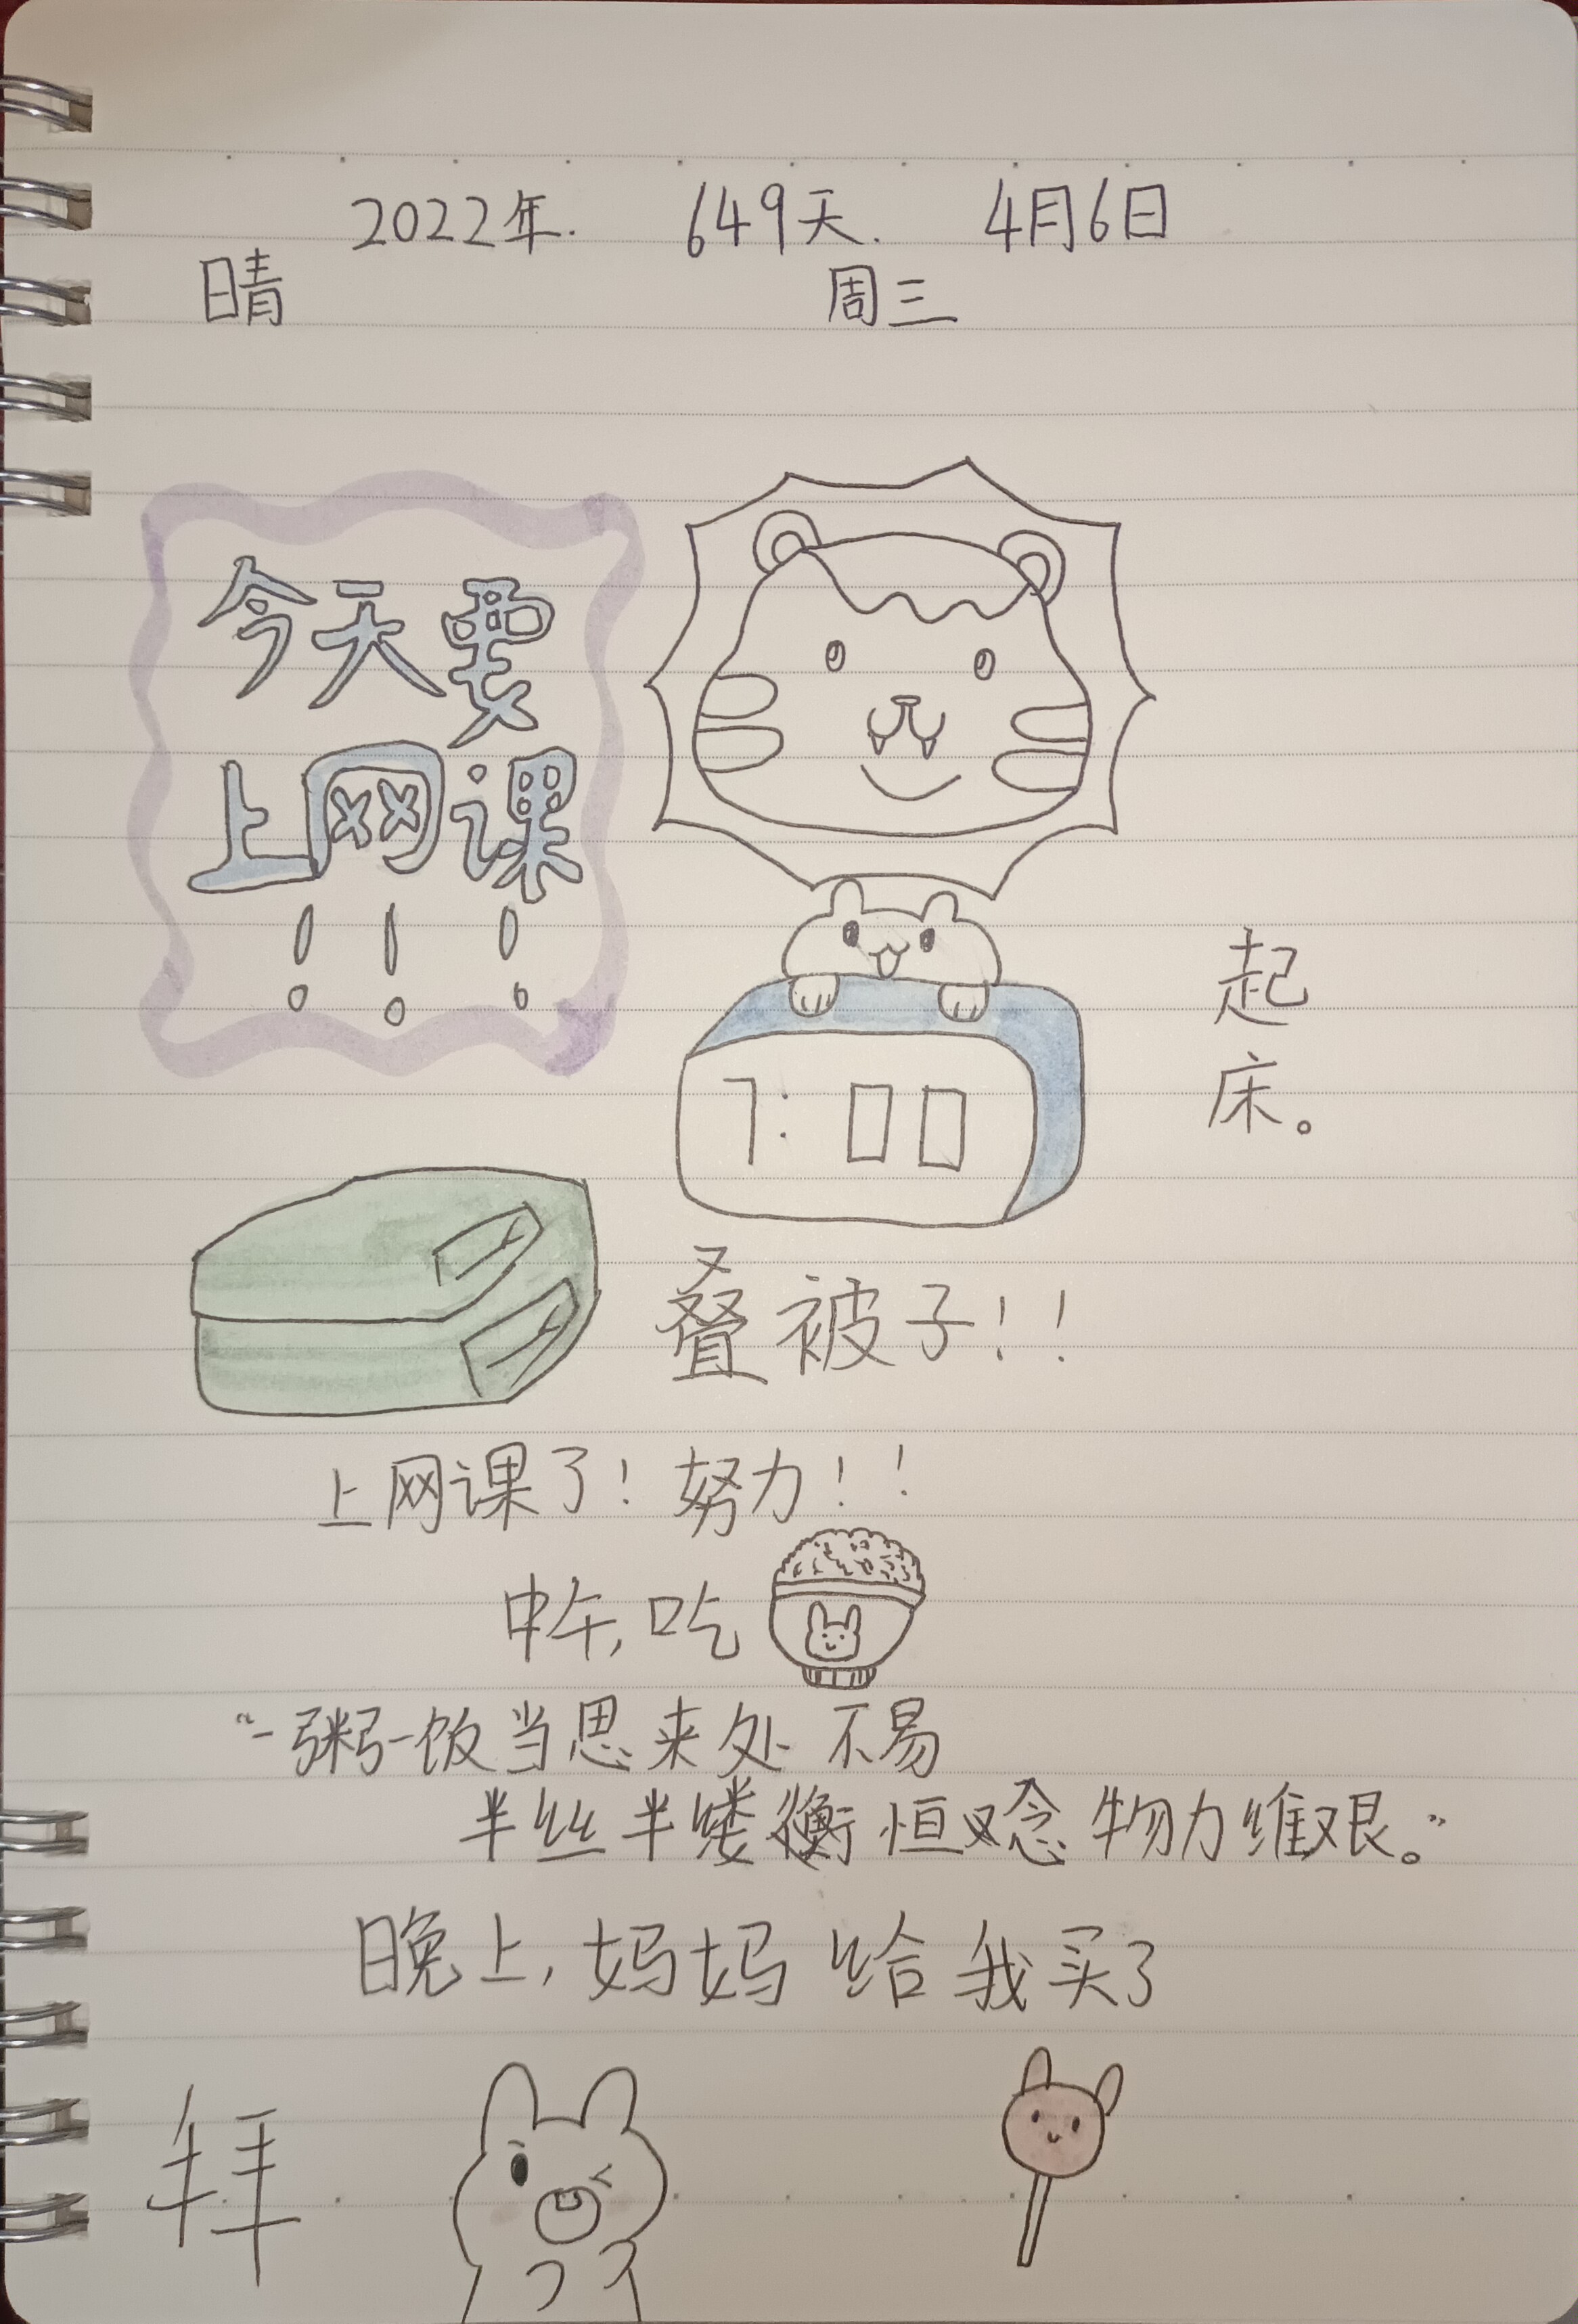 2022年. 649天. 4月6日
晴 周三
今天要
上网课
!!!
起床。
7:00
叠被子!!
上网课了!努力!!
中午,吃
“一粥一饭当思来处不易
半丝半缕恒念物力维艰。”
晚上,妈妈给我买了
拜